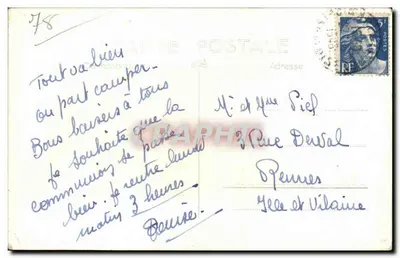 78
CARTE POSTALE
Adresse
5F
RF
Tout va bien
on part camper.
Bons baisers à tous
Je souhaite que la
communion se passe
bien. Je rentre lundi
matin 3 heures
Denise.
Mr et Mme Pief
3 Rue Derval
Rennes
Ille et Vilaine